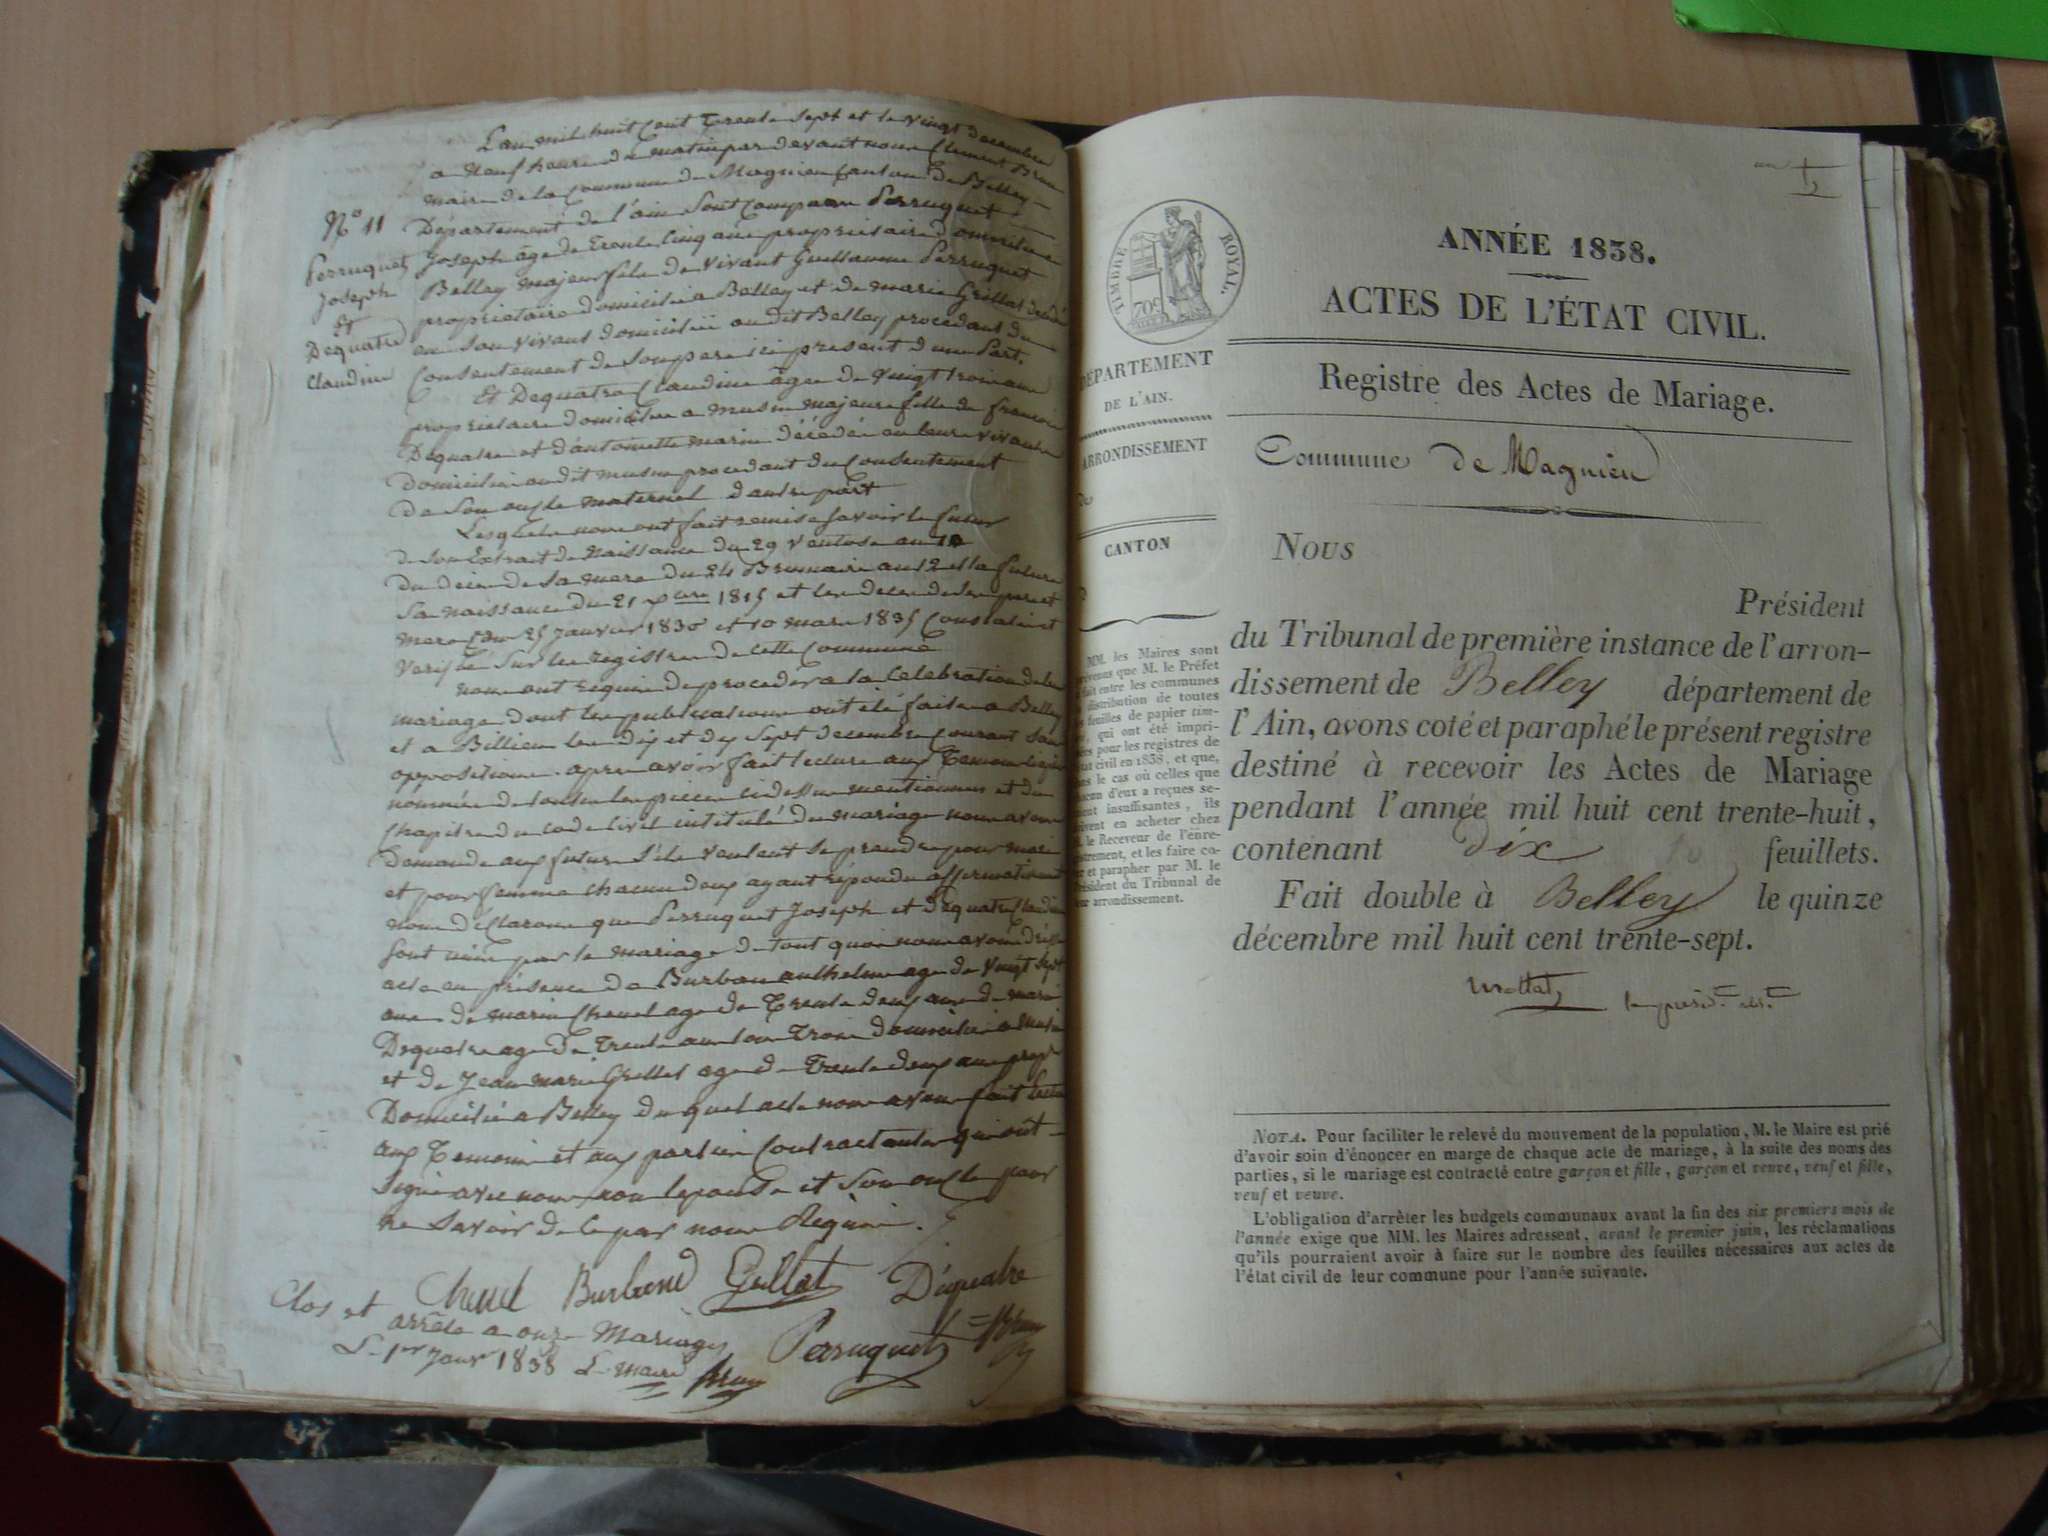 L'an mil huit cent Trente sept et le vingt decembre
a neuf heures du matin par devant nous Clement Brun
maire de la Commune de Magnieu canton de Belley
Département de l'ain sont comparu Perruquet
Joseph âgé de Trente cinq ans propriétaire domicilié a
Belley majeur fils de vivant Guillaume Perruquet
propriétaire domicilié a Belley et de marie Grillat décédé
en son vivant domiciliée au dit Belley procédant du
Consentement de Son pere ici présent d'une Part.
Et Dequatre Claudine âgée de vingt trois ans
propriétaire domiciliée a musin majeure fille de francois
Dequatre et d'antoinette marin décédés en leurs vivants
domiciliés au dit musin procédant du Consentement
de Son oncle maternel d'autre part
Lesquels nous ont fait remise savoir le futur
de son Extrait de Naissance du 29 ventose an
du décès de Sa mere du 24 Brumaire an 12 et la future
Sa naissance du 21 1815 et les décès de ses pere et
mere du 25 Janvier 1830 et 10 mars 1835 Constatés et
Verifiés Sur les registres de cette Commune
nous ont requis de proceder a la Celebration de leur
mariage dont les publications ont été faites a Belley
et a Billieu les dix et dix Sept decembre Courant sans
oppositions. apres avoir fait lecture aux Temoins
nommés de toutes les pieces ci dessus mentionnées et du
Chapitre du code Civil intitulé du mariage nous avons
Demandé aux futurs S'ils veulent se prendre pour mari
et pour femme chacun deux ayant répondu affirmativement
nous déclarons que Perruquet Joseph et Dequatre Claudine
sont unis par le mariage de tout quoi nous avons dréssé
acte en présence de Burban anthelme age de vingt Sept
ans de marin Chenel age de Trente deux ans de marin
Dequatre age de Trente ans tous Trois domiciliés a musin
et de Jean marie Grillet age de Trente deux ans propre
Domicilié a Belley du quel acte nous avons fait lecture
aux Temoins et aux parties Contractantes qui ont
Signé avec nous non lepouse et Son oncle pour
ne Savoir de ce par nous Requis.
N° 11
Perruquet
Joseph
et
Dequatre
Claudine
Chenel Burband Grillat Dequatre
Clos et
arrêté a onze Mariages Perruquet Brun
Le 1er Janv 1838 Le maire Brun
ANNÉE 1838.
ACTES DE L'ÉTAT CIVIL.
Registre des Actes de Mariage.
Commune de Magnieu
Nous
Président
du Tribunal de première instance de l'arron-
dissement de Belley département de
l'Ain, avons coté et paraphé le présent registre
destiné à recevoir les Actes de Mariage
pendant l'année mil huit cent trente-huit,
contenant dix 10 feuillets.
Fait double à Belley le quinze
décembre mil huit cent trente-sept.
le présid.
NOTA. Pour faciliter le relevé du mouvement de la population, M. le Maire est prié
d'avoir soin d'énoncer en marge de chaque acte de mariage, à la suite des noms des
parties, si le mariage est contracté entre garçon et fille, garçon et veuve, veuf et fille,
veuf et veuve.
L'obligation d'arrêter les budgets communaux avant la fin des six premiers mois de
l'année exige que MM. les Maires adressent, avant le premier juin, les réclamations
qu'ils pourraient avoir à faire sur le nombre des feuilles nécessaires aux actes de
l'état civil de leur commune pour l'année suivante.
TIMBRE ROYAL.
70c
DÉPARTEMENT
DE L'AIN.
ARRONDISSEMENT
de
CANTON
MM. les Maires sont
prévenus que M. le Préfet
fait entre les communes
distribution de toutes
feuilles de papier tim-
qui ont été impri-
mées pour les registres de
état civil en 1838, et que,
dans le cas où celles que
chacun d'eux a reçues se-
raient insuffisantes, ils
doivent en acheter chez
M. le Receveur de l'enre-
gistrement, et les faire co-
ter et parapher par M. le
Président du Tribunal de
leur arrondissement.